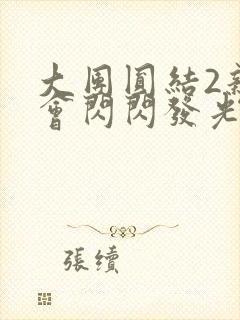 大團圓結2新
會閃閃發光
張續